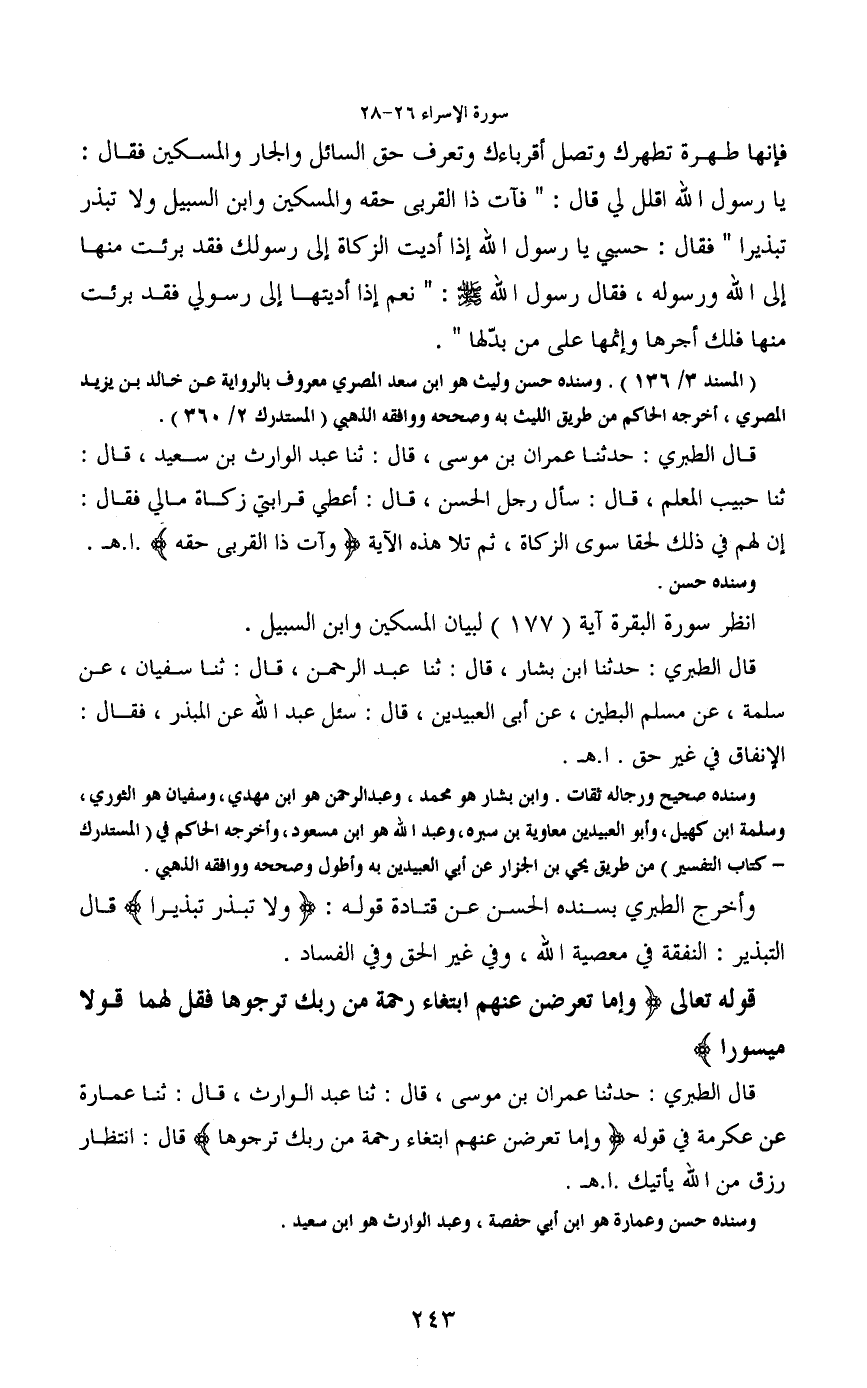 سورة الإسراء ٢٦-٢٨
فإنها طهرة تطهرك وتصل أقرباءك وتعرف حق السائل والجار والمسكين فقال :
يا رسول الله اقلل لي قال : " فآت ذا القربى حقه والمسكين وابن السبيل ولا تبذر
تبذيرا " فقال : حسبي يا رسول الله إذا أديت الزكاة إلى رسولك فقد برئت منها
إلى الله ورسوله ، فقال رسول الله ﷺ : " نعم إذا أديتها إلى رسولي فقد برئت
منها فلك أجرها وإثمها على من بدّلها " .
( المسند ٣/ ١٣٦ ) . وسنده حسن وليث هو ابن سعد المصري معروف بالرواية عن خالد بن يزيد
المصري ، أخرجه الحاكم من طريق الليث به وصححه ووافقه الذهبي ( المستدرك ٢/ ٣٦٠ ) .
قال الطبري : حدثنا عمران بن موسى ، قال : ثنا عبد الوارث بن سعيد ، قال :
ثنا حبيب المعلم ، قال : سأل رجل الحسن ، قال : أعطي قرابتي زكاة مالي فقال :
إن لهم في ذلك لحقا سوى الزكاة ، ثم تلا هذه الآية ﴿ وآت ذا القربى حقه ﴾ .ا.هـ .
وسنده حسن .
انظر سورة البقرة آية ( ١٧٧ ) لبيان المسكين وابن السبيل .
قال الطبري : حدثنا ابن بشار ، قال : ثنا عبد الرحمن ، قال : ثنا سفيان ، عن
سلمة ، عن مسلم البطين ، عن أبى العبيدين ، قال : سئل عبد الله عن المبذر ، فقال :
الإنفاق في غير حق . ا.هـ .
وسنده صحيح ورجاله ثقات . وابن بشار هو محمد ، وعبدالرحمن هو ابن مهدي، وسفيان هو الثوري ،
وسلمة ابن كهيل، وأبو العبيدين معاوية بن سبره، وعبد الله هو ابن مسعود، وأخرجه الحاكم في ( المستدرك
– كتاب التفسير ) من طريق يحي بن الجزار عن أبي العبيدين به وأطول وصححه ووافقه الذهبي .
وأخرج الطبري بسنده الحسن عن قتادة قوله : ﴿ ولا تبذر تبذيرا ﴾ قال
التبذير : النفقة في معصية الله ، وفي غير الحق وفي الفساد .
قوله تعالى ﴿ وإما تعرضن عنهم ابتغاء رحمة من ربك ترجوها فقل لهما قولا
ميسورا ﴾
قال الطبري : حدثنا عمران بن موسى ، قال : ثنا عبد الوارث ، قال : ثنا عمارة
عن عكرمة في قوله ﴿ وإما تعرضن عنهم ابتغاء رحمة من ربك ترجوها ﴾ قال : انتظار
رزق من الله يأتيك .ا.هـ .
وسنده حسن وعمارة هو ابن أبي حفصة ، وعبد الوارث هو ابن سعيد .
٢٤٣